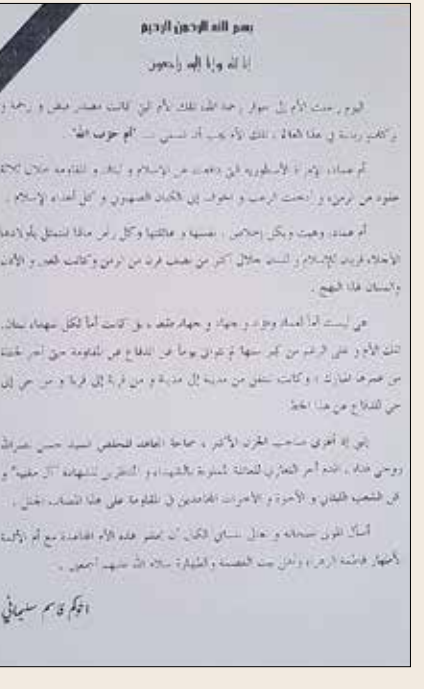 بسم الله الرحمن الرحيم
إنا لله وإنا إليه راجعون
اليوم رحلت الأم إلى جوار رحمة الله، تلك الأم التي كانت مصدر فيض و رحمة و
بركات في هذا العالم، تلك الأم يجب أن تسمى ... "أم حزب الله"
أم عماد، الإمرأة الأسطورية التي دافعت عن الإسلام و لبنان و المقاومة خلال ثلاثة
عقود من الزمن، و أدخلت الرعب و الخوف إلى الكيان الصهيوني و كل أعداء الإسلام .
أم عماد، وهبت وبكل إخلاص ، نفسها و عائلتها وكل رأس مالها المتمثل بأولادها
الأجلاء قربان للإسلام و لبنان خلال أكثر من نصف قرن من الزمن وكانت العين و الأذن
واللسان لهذا النهج .
هي ليست أماً لعماد وفؤاد و جهاد و جهاد فقط ، بل كانت أماً لكل شهداء لبنان.
تلك الأم و على الرغم من كبر سنها لم تتوانى يوماً عن الدفاع عن المقاومة حتى آخر لحظة
من عمرها المبارك ، وكانت تنتقل من مدينة إلى مدينة و من قرية إلى قرية و من حي إلى
حي للدفاع عن هذا الخط
إنني إذ أعزي صاحب الحزن الأكبر ، سماحة المجاهد المخلص السيد حسن نصرالله
روحي فداه ، أقدم أحر التعازي للعائلة المملوءة بالشهداء و المنتظرين للشهادة "آل مغنية" و
كل الشعب اللبناني و الأخوة و الأخوات المجاهدين في المقاومة على هذا المصاب الجلل .
أسأل المولى سبحانه و تعالى أن يحشر هذه الأم المجاهدة مع أم الأئمة
الأطهار فاطمة الزهراء وأهل بيت العصمة والطهارة سلام الله عليهم أجمعين .
أخوكم قاسم سليماني